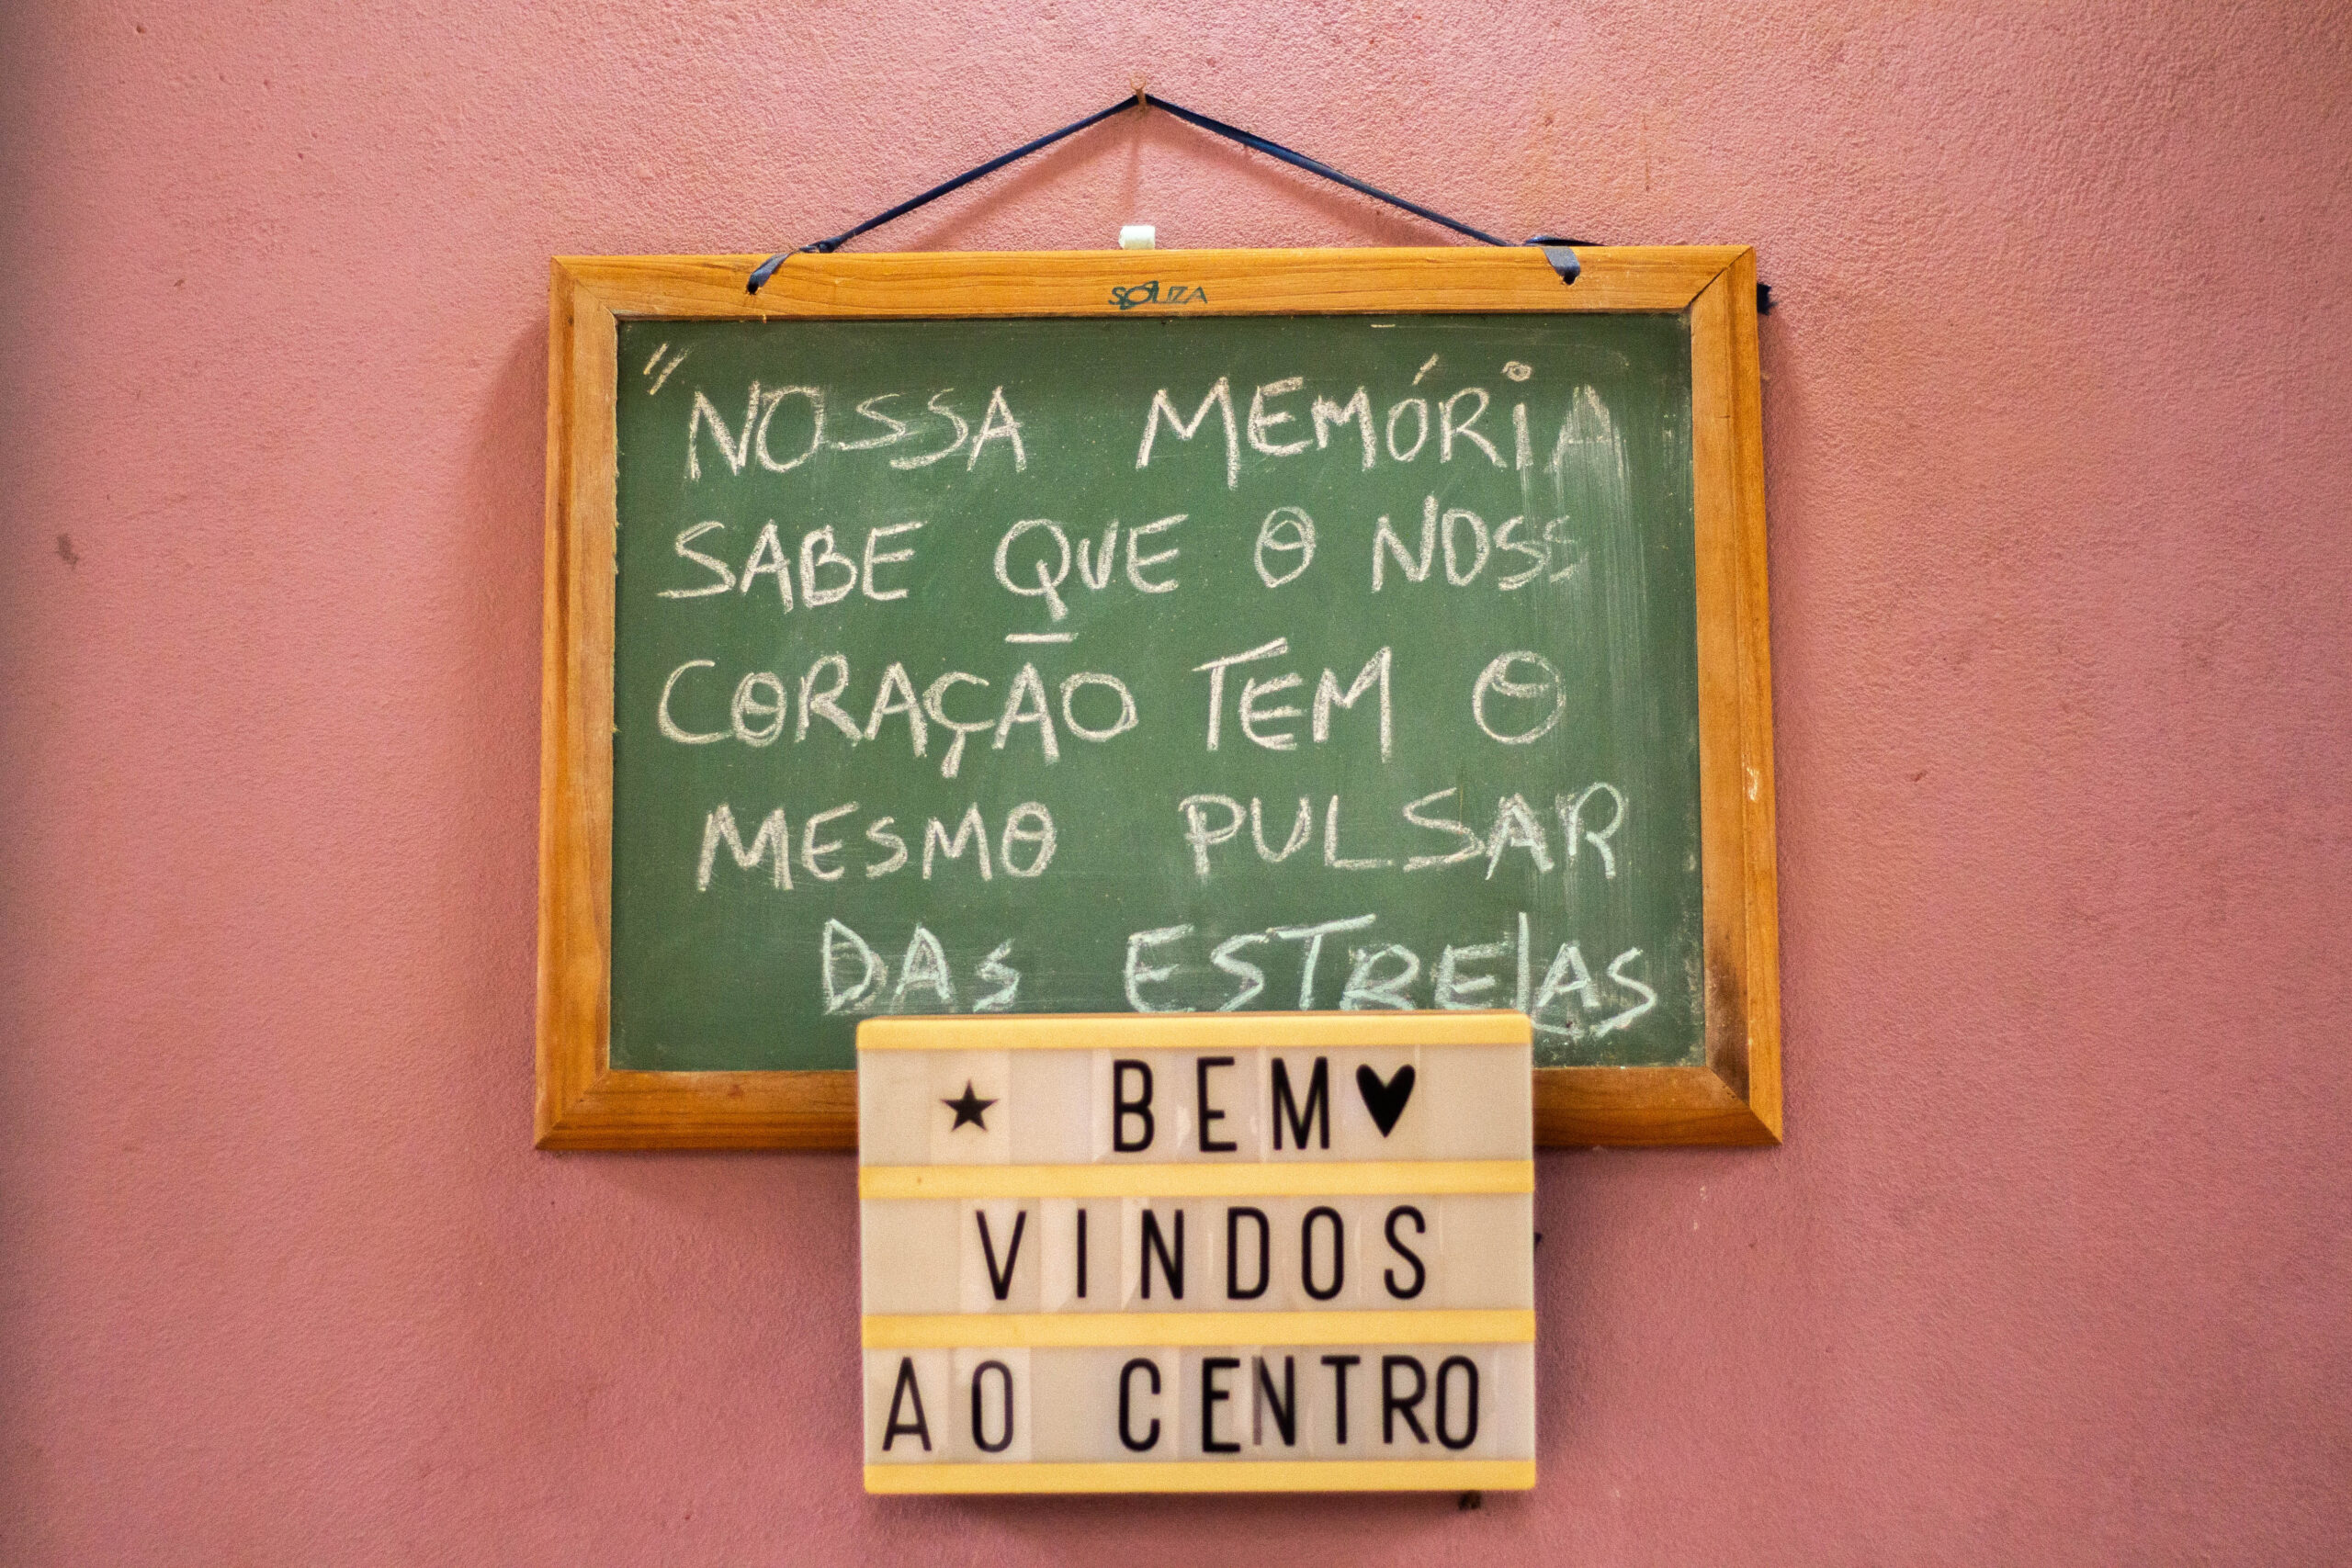 SOUZA
"NOSSA MEMÓRIA
SABE QUE O NOSS
CORAÇÃO TEM O
MESMO PULSAR
DAS ESTRElAS
★ BEM♥
VINDOS
AO CENTRO